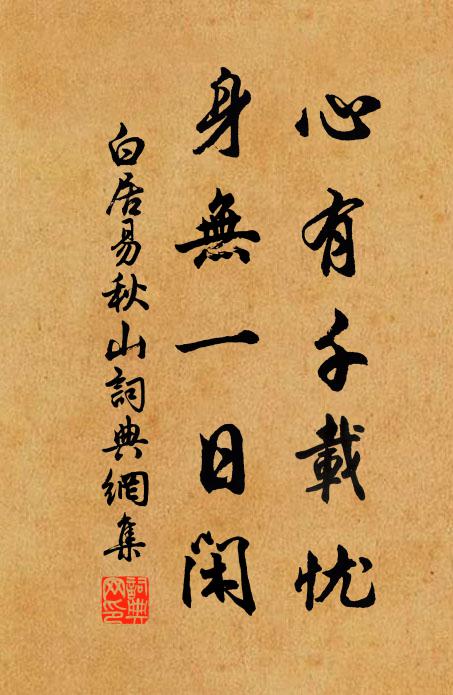 心有千載忧
身無一日閑
白居易秋山詞典網集
詞典網印